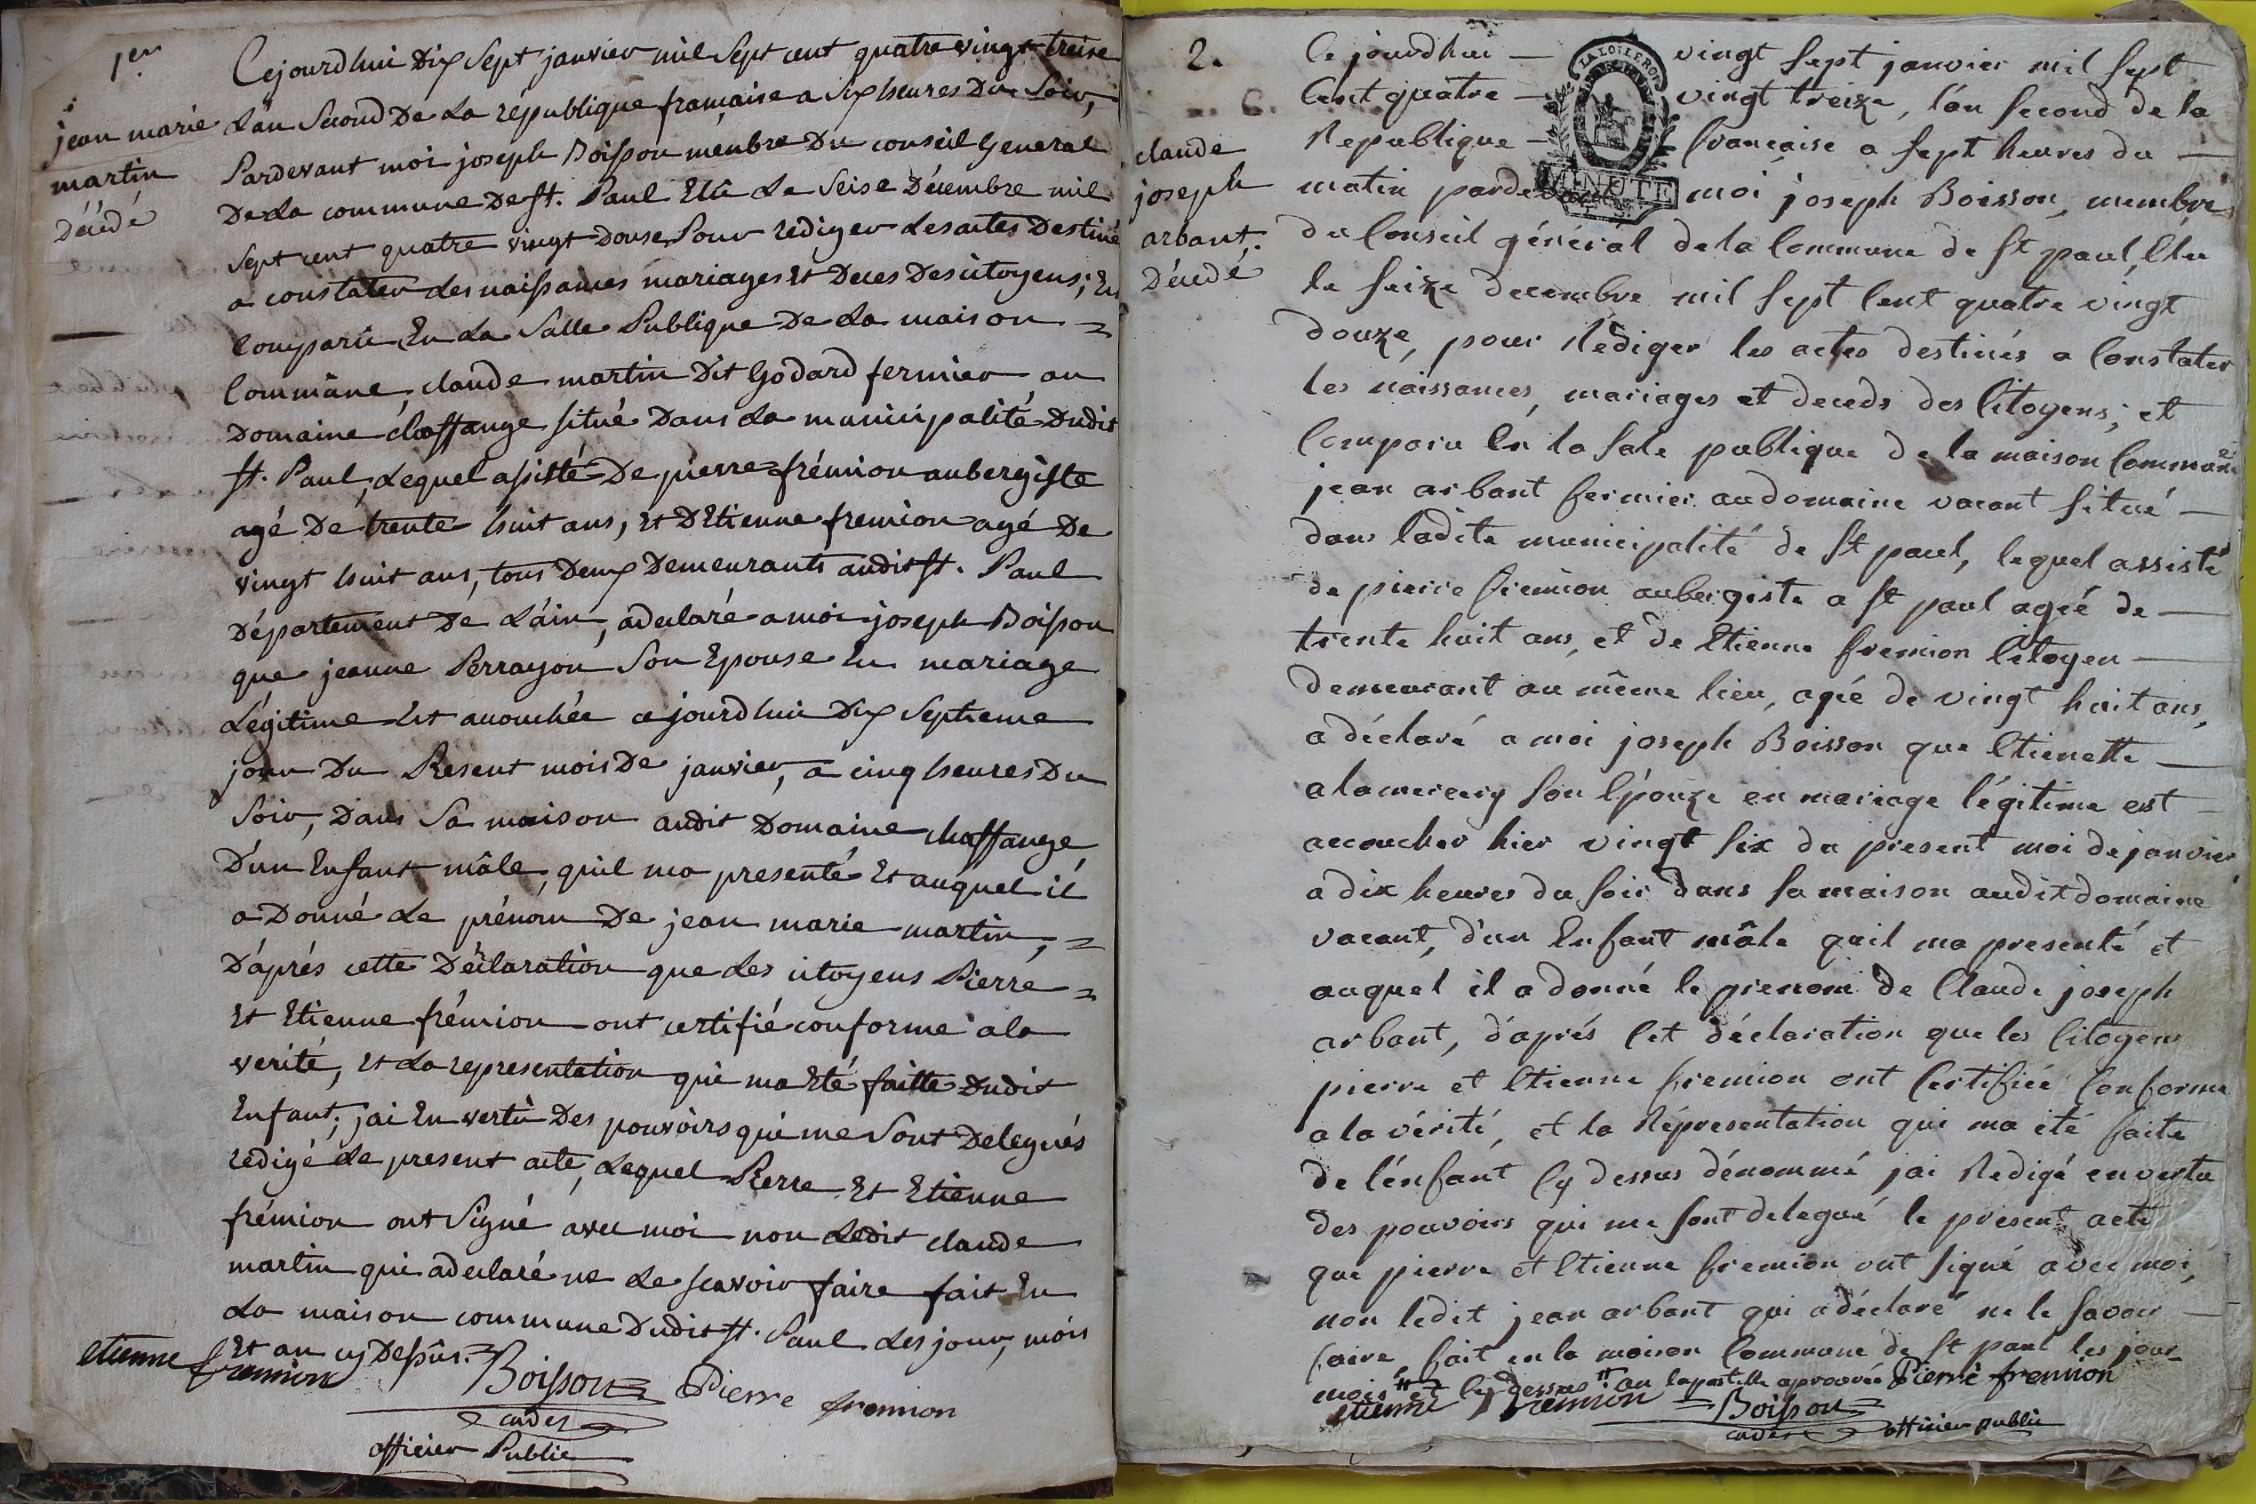 1er
jean marie
martin
Décédé
Cejourdhui Dix Sept janvier mil Sept cent quatre vingt treise
Lan Second De La république française a Six heures Du Soir,
Pardevant moi joseph Boisson menbre Du conseil General
De La commune De st. Paul Elû Le Seise Décembre mil
Sept cent quatre vingt Douse, Pour rédiger Les actes Destiné
a constater Les naissances mariages Et Deces Des citoyens; En
Comparu En La Salle Publique De La maison
Commûne, claude martin Dit Godard fermier au
Domaine chaffange situé Dans La municipalité Dudit
st. Paul, Lequel assisté De pierre frémion aubergiste
agé De trente huit ans, Et DEtienne fremion agé De
vingt huit ans, tous Deux Demeurants audit st. Paul
Département De Láin, adeclaré a moi joseph Boisson
que jeanne Perrayon Son Epouse En mariage
Légitime Est accouchée cejourdhui Dix Septieme
jour Du Present mois De janvier, a cinq heures Du
Soir, Dans Sa maison audit Domaine chaffange
D'un Enfant mâle, quil ma presenté Et auquel il
a Donné Le prénom De jean marie martin,
D'aprés cette Déclaration que Les citoyens Pierre
Et Etienne frémion ont certifié conforme a la
verité, Et La representation qui ma Eté faitte Dudit
Enfant; jai En vertû Des pouvoirs qui me Sont Delegués
redigé Le present acte, Lequel Pierre Et Etienne
frémion ont Signé avec moi non Ledit claude
martin qui adeclaré ne Le scavoir faire fait En
La maison commune Dudit st. Paul Les jour, mois
Et an cy Dessûs.
etienne fremion Boisson Pierre fremion
cadet
officier Public
2.
claude
joseph
arbant.
Décédé
LA LOI LE ROI
MINUTE
Ce jourdhui vingt sept janvier mil sept
Cent quatre vingt treize, l'an second de la
Republique française a sept heures du
matin pardevant moi joseph Boisson, membre
du Conseil général de la Commune de st paul, Elu
le seize decembre mil sept Cent quatre vingt
douze, pour Rédiger les actes destinés a Constater
les naissances, mariages et deceds des Citoyens; et
Comparu En la sale publique de la maison Commune
jean arbant fermier au domaine vacant situé
dans ladite municipalité de st paul, lequel assisté
de pierre fremion aubergiste a st paul agée de
trente huit ans, et de Etienne fremion Citoyen
demeurant au même lieu, agée de vingt huit ans,
a déclaré a moi joseph Boisson que Etienette
alamercery son Epouze en mariage légitime est
accoucher hier vingt six du present moi de janvier
a dix heures du soir dans sa maison audit domaine
vacant, d'un Enfant mâle quil ma presenté et
auquel il a donné le prenom de Claude joseph
arbant, d'aprés Cet déclaration que les Citoyens
pierre et Etienne fremion ont Certifiée Conforme
a la vérité, et la Répresentation qui ma eté faite
de l'énfant Cy dessus dénommé jai Redigé en vertu
des pouvoirs qui me sont delegué le présent acte
que pierre et Etienne fremion ont signé avec moi,
non ledit jean arbant qui a déclaré ne le savoir
faire, fait en la maison Commune de st paul les jour
mois et Cy dessus. an lapostille aprouvée Pierre fremion
etienne fremion Boisson
cadet officier public